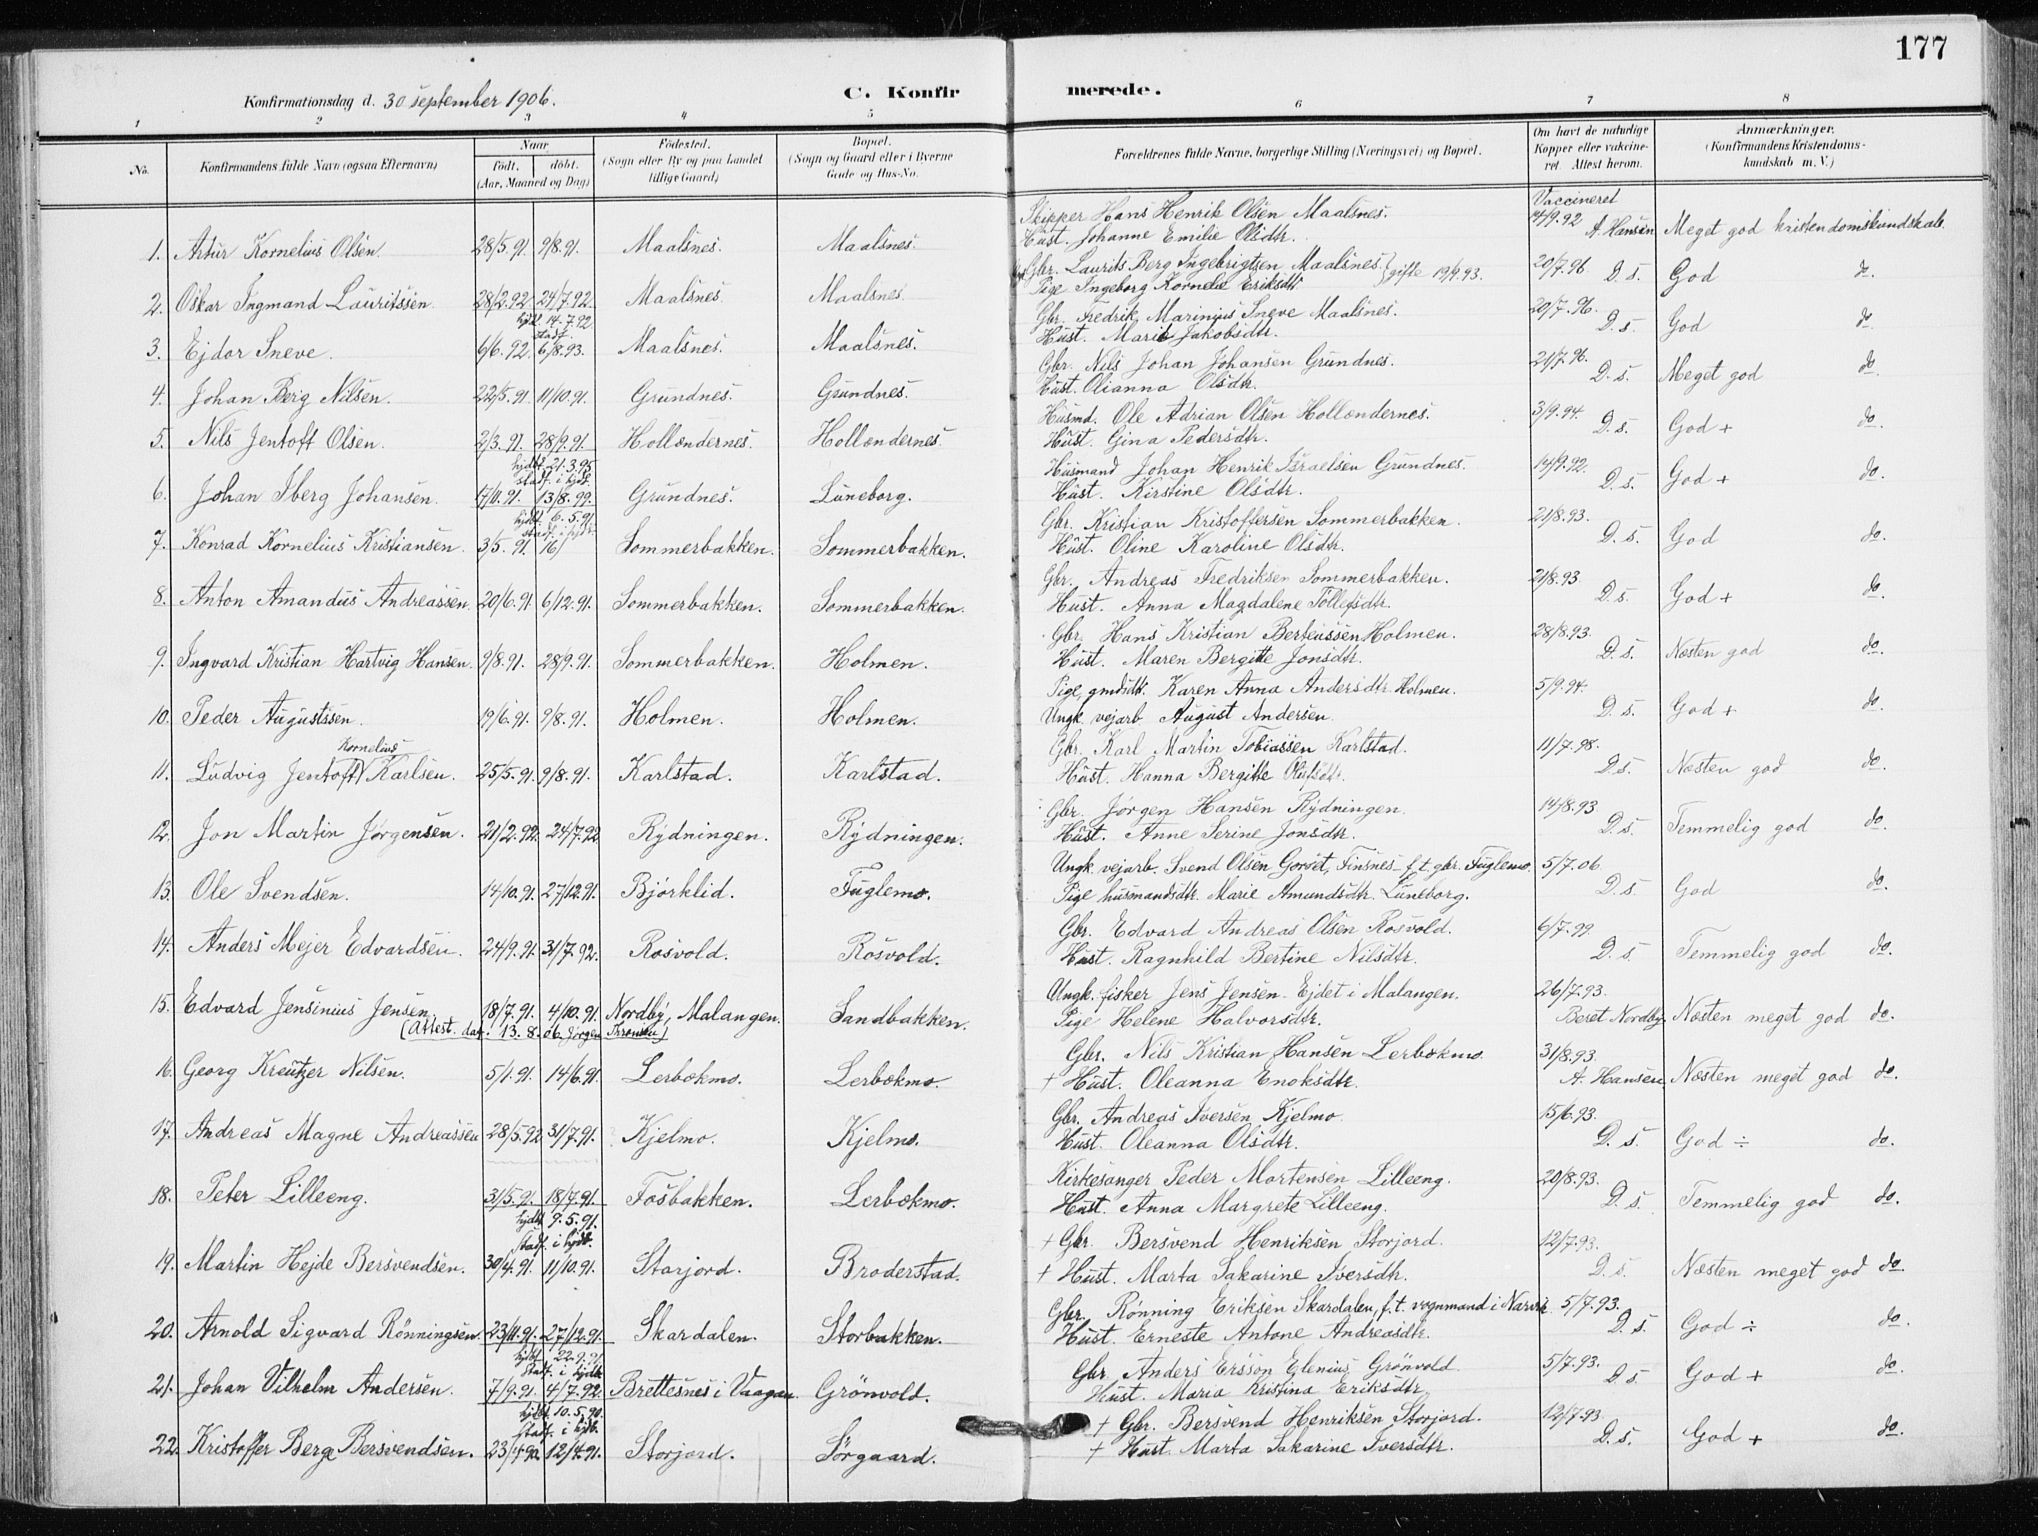 177
Konfirmationsdag d. 30 september 1906.
C. Konfir merede.
1 2 3 4 5 6 7 8
No. Konfirmandens fulde Navn (ogsaa Efternavn) Naar født. døbt. (Aar, Maaned og Dag) Fødested. (Sogn eller By og paa Landet tillige Gaard) Bopæl. (Sogn og Gaard eller i Byerne Gade og Hus-No. Forældrenes fulde Navne, borgerlige Stilling (Næringsvei) og Bopæl. Om havt de naturlige Kopper eller vakcineret. Attest herom. Anmærkninger. (Konfirmandens Kristendomskundskab m. V.)
1. Artur Kornelius Olsen. 28/5.91. 9/8.91. Maalsnes. Maalsnes. Skipper Hans Henrik Olsen Maalsnes. Vaccineret 14/9.92
Hust. Johanne Emilie Olsdtr. A. Hansen Meget god kristendomskundskab.
2. Oskar Ingmand Lauritssen. 28/2.92. 24/7.92. Maalsnes. Maalsnes. Gbr. Laurits Berg Ingebrigtsen Maalsnes. } gifte 19/9.93. 20/7.96
Pige Ingeborg Kornelie Eriksdtr D. s. God do.
hjdt. 14.7.92
stadf.
3. Ejdor Sneve. 6/6.92. 6/8.93. Maalsnes. Maalsnes. Gbr. Fredrik Marinius Sneve Maalsnes. 20/7.96.
Hust. Marit Jakobsdtr. D. s. God do
4. Johan Berg Nilsen. 22/5.91. 11/10.91. Grundnes. Grundnes. Gbr. Nils Johan Johansen Grundnes. 21/7.96.
Hust. Olianna Olsdtr. D. s. Meget god do.
5. Nils Jentoft Olsen. 2/3.91. 28/9.91. Hollændernes. Hollændernes. Husmd. Ole Adrian Olsen Hollændernes. 3/9.94.
Hust. Gina Pedersdtr. D. s. God + do.
hjdbt. 21.3.95
stadf. i hjdt.
6. Johan Iberg Johansen. 17/11.91. 13/8.99. Grundnes. Luneborg. Husmand Johan Henrik Israelsen Grundnes. 14/9.92.
Hust. Kirstine Olsdtr. D. s. God + do.
hjdbt. 6.5.91
stadf. i hjdt.
7. Konrad Kornelius Kristiansen. 3/5.91. 16/ Sommerbakken. Sommerbakken. Gbr. Kristian Kristoffersen Sommerbakken. 21/8.93.
Hust. Oline Karoline Olsdtr. D. s. God do.
8. Anton Amandus Andreassen. 20/6.91. 6/12.91. Sommerbakken. Sommerbakken. Gbr. Andreas Fredriksen Sommerbakken. 21/8.93
Hust. Anna Magdalene Tollefsdtr. D. s. God + do.
9. Ingvard Kristian Hartvig Hansen. 9/8.91. 28/9.91. Sommerbakken. Holmen. Gbr. Hans Kristian Berteussen Holmen. 28/8.93.
Hust. Maren Bergitte Jonsdtr. D. s. Næsten god do.
10. Peder Augustssen. 19/6.91. 9/8.91. Holmen. Holmen. Pige, gmdsdtr. Karen Anna Andersdtr. Holmen. 5/9.94.
Ungk. vejarb. August Andersen. D. s. God + do.
Kornelius
11. Ludvig Jentoft Karlsen. 25/5.91. 9/8.91. Karlstad. Karlstad. Gbr. Karl Martin Tobiassen Karlstad. 11/7.98.
Hust. Hanna Bergitte Olufsdtr. D. s. Næsten god do.
12. Jon Martin Jørgensen. 21/2.92. 24/7.92 Rydningen. Rydningen. Gbr. Jørgen Hansen Rydningen. 14/8.93
Hust. Anne Serine Jonsdtr. D. s. Temmelig god do.
13. Ole Svendsen. 14/10.91. 27/12.91. Bjørklid. Fuglemo. Ungk. vejarb. Svend Olsen Gorset, Finsnes f.t. gbr. Fuglemo. 5/7.06
Pige husmandsdtr. Marie Amundsdtr. Luneborg. D. s. God do.
14. Anders Mejer Edvardsen. 24/9.91. 31/7.92. Rosvold. Rosvold. Gbr. Edvard Andreas Olsen Rosvold. 6/7.99.
Hust. Ragnhild Bertine Nilsdtr. D. s. Temmelig god do.
15. Edvard Jensinius Jensen. 18/7.91. 4/10.91. Nordby, Malangen. Sandbakken. Ungk. fisker Jens Jensen Ejdet i Malangen. 26/7.93.
(Attest. dat. 13.8.06. Jørgen Thronsen) Pige Helene Halvorsdtr. Beret Nordby. Næsten meget god do.
16. Georg Kreutzer Nilsen. 5/1.91. 14/6.91. Lerbækmo. Lerbækmo. Gbr. Nils Kristian Hansen Lerbækmo. 31/8.93.
+ Hust. Oleanna Enoksdtr. A. Hansen. Næsten meget god do.
17. Andreas Magne Andreassen 28/5.92. 31/7.91. Kjelmo. Kjelmo. Gbr. Andreas Iversen Kjelmo. 15/6.93.
Hust. Oleanna Olsdtr. D. s. God ÷ do.
18. Peter Lilleeng. 31/5.91. 18/7.91. Fosbakken. Lerbækmo. Kirkesanger Peder Mortensen Lilleeng. 20/8.93.
Hust. Anna Margrete Lilleeng. D. s. Temmelig god do.
hjdbt. 9.5.91.
stadf. i hjdt.
19. Martin Hejde Bersvendsen. 30/4.91. 11/10.91. Storjord. Broderstad. + Gbr. Bersvend Henriksen Storjord. 12/7.93.
+ Hust. Marta Sakarine Iversdtr. D. s. Næsten meget god do.
20. Arnold Sigvard Rønningsen. 23/11.91. 27/12.91. Skardalen. Storbakken. Gbr. Rønning Eriksen Skardalen, f.t. vognmand i Narvik 5/7.93.
Hust. Erneste Antone Andreasdtr. D. s. God ÷ do.
hjdbt. 22.9.91
stadf. i hjdt.
21. Johan Vilhelm Andersen. 7/9.91. 4/7.92. Brettesnes i Vaagan. Grönvold. Gbr. Anders Ersson Elenius Grönvold. 5/7.93.
Hust. Maria Kristina Eriksdtr. D. s. God + do.
hjdbt. 10.5.90.
stadf. i hjdt.
22. Kristoffer Berg Bersvendsen. 23/4.90. 12/4.91. Storjord. Sørgaard. + Gbr. Bersvend Henriksen Storjord. 12/7.93
+ Hust. Marta Sakarine Iversdtr. D. s. God + do.